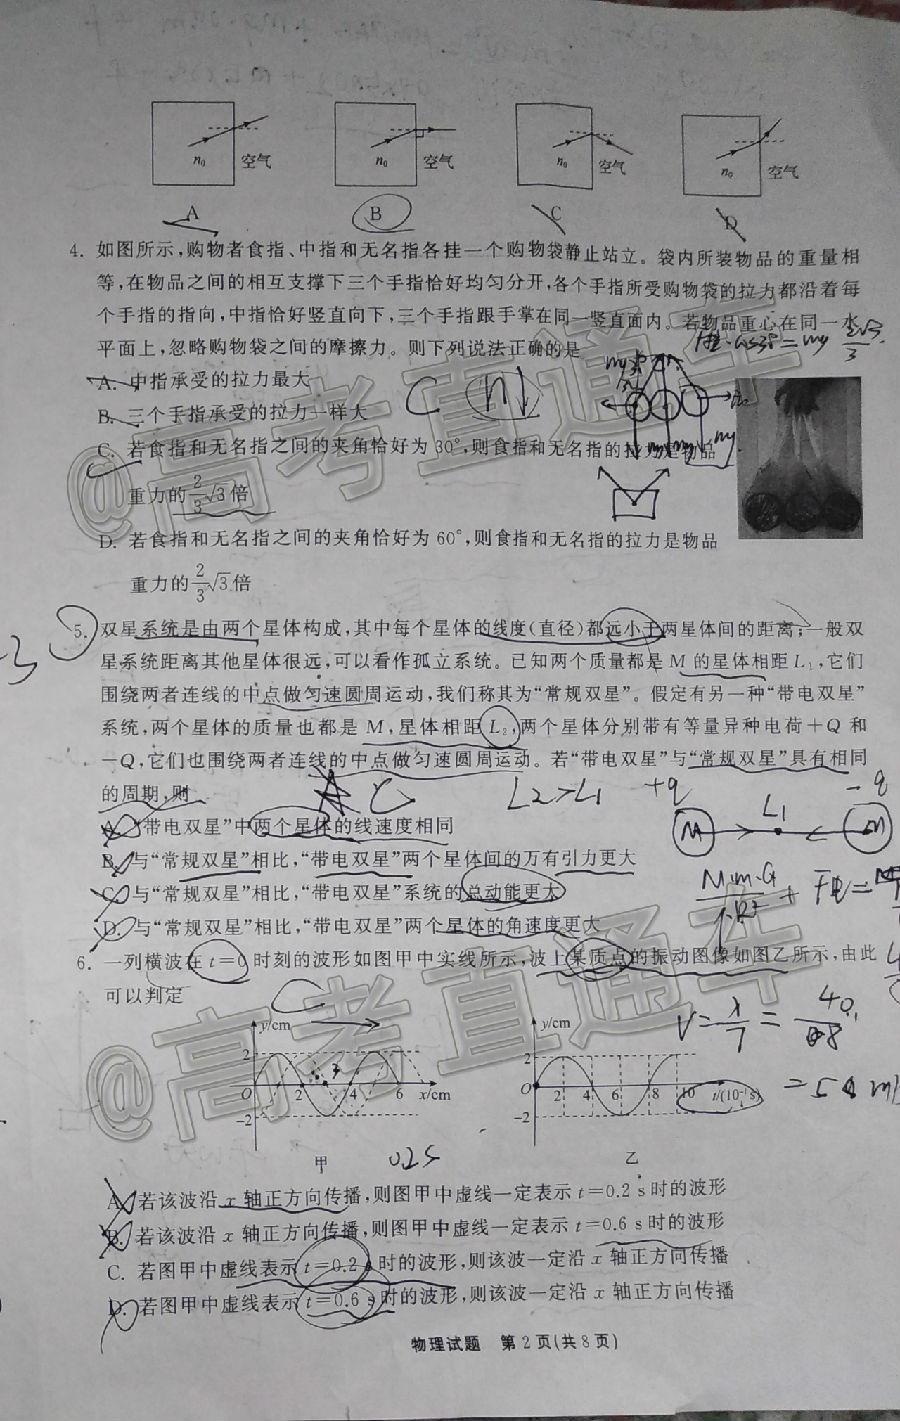 n₀ 空气 n₀ 空气 n₀ 空气 n₀ 空气
A B C D
4. 如图所示,购物者食指、中指和无名指各挂一个购物袋静止站立。袋内所装物品的重量相
等,在物品之间的相互支撑下三个手指恰好均匀分开,各个手指所受购物袋的拉力都沿着每
个手指的指向,中指恰好竖直向下,三个手指跟手掌在同一竖直面内。若物品重心在同一水
平面上,忽略购物袋之间的摩擦力。则下列说法正确的是
A. 中指承受的拉力最大
B. 三个手指承受的拉力一样大
C
C. 若食指和无名指之间的夹角恰好为30°,则食指和无名指的拉力是物品
重力的2/3√3倍
D. 若食指和无名指之间的夹角恰好为60°,则食指和无名指的拉力是物品
重力的2/3√3倍
5. 双星系统是由两个星体构成,其中每个星体的线度(直径)都远小于两星体间的距离;一般双
星系统距离其他星体很远,可以看作孤立系统。已知两个质量都是M的星体相距L₁,它们
围绕两者连线的中点做匀速圆周运动,我们称其为“常规双星”。假定有另一种“带电双星”
系统,两个星体的质量也都是M,星体相距L₂,两个星体分别带有等量异种电荷+Q和
-Q,它们也围绕两者连线的中点做匀速圆周运动。若“带电双星”与“常规双星”具有相同
的周期,则
C L₂>L₁ +q -q
L₁
A. “带电双星”中两个星体的线速度相同
B. 与“常规双星”相比,“带电双星”两个星体间的万有引力更大
C. 与“常规双星”相比,“带电双星”系统的总动能更大
D. 与“常规双星”相比,“带电双星”两个星体的角速度更大
6. 一列横波在t=0时刻的波形如图甲中实线所示,波上某质点的振动图像如图乙所示,由此
可以判定
y/cm y/cm
2 2
O 2 4 6 x/cm O 2 4 6 8 10 t/(10⁻¹s)
-2 -2
甲 乙
A. 若该波沿x轴正方向传播,则图甲中虚线一定表示t=0.2 s时的波形
B. 若该波沿x轴正方向传播,则图甲中虚线一定表示t=0.6 s时的波形
C. 若图甲中虚线表示t=0.2 s时的波形,则该波一定沿x轴正方向传播
D. 若图甲中虚线表示t=0.6 s时的波形,则该波一定沿x轴正方向传播
物理试题 第2页(共8页)
@高考直通车
@高考直通车